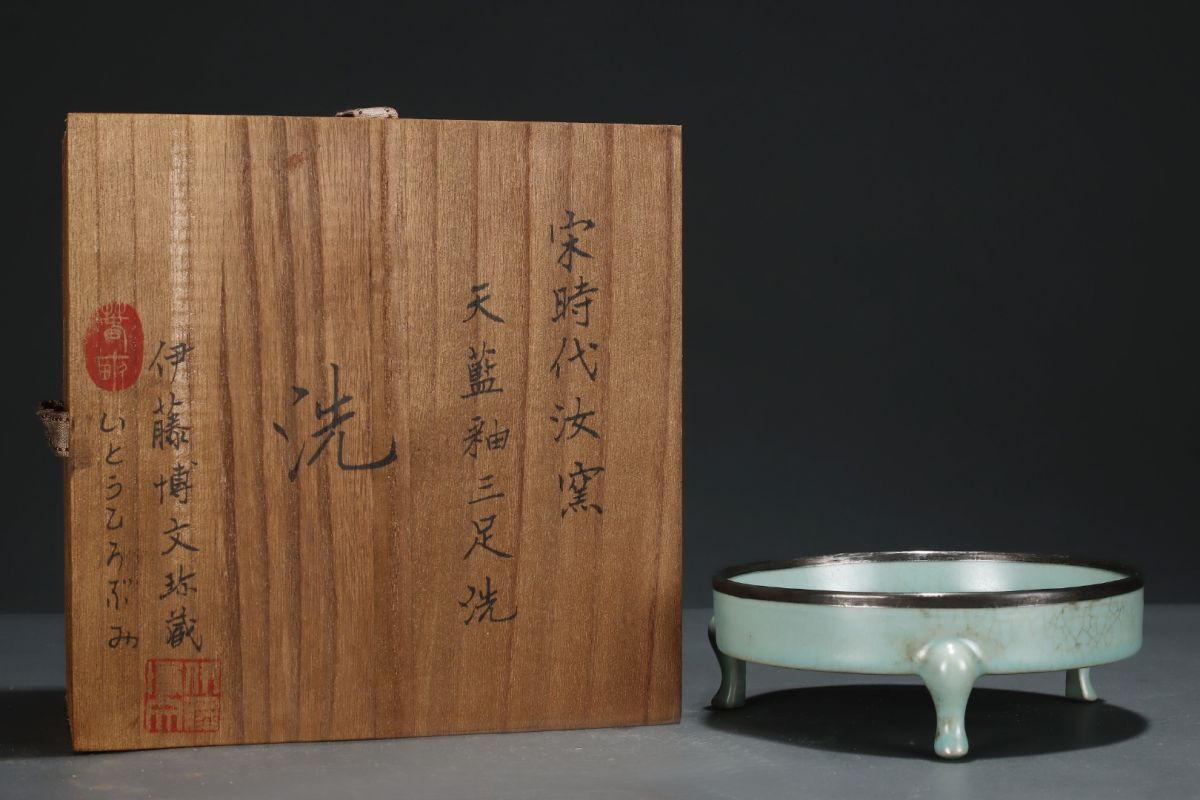 宋時代汝窯
天藍釉三足洗
洗
伊藤博文珍藏
いとうひろぶみ